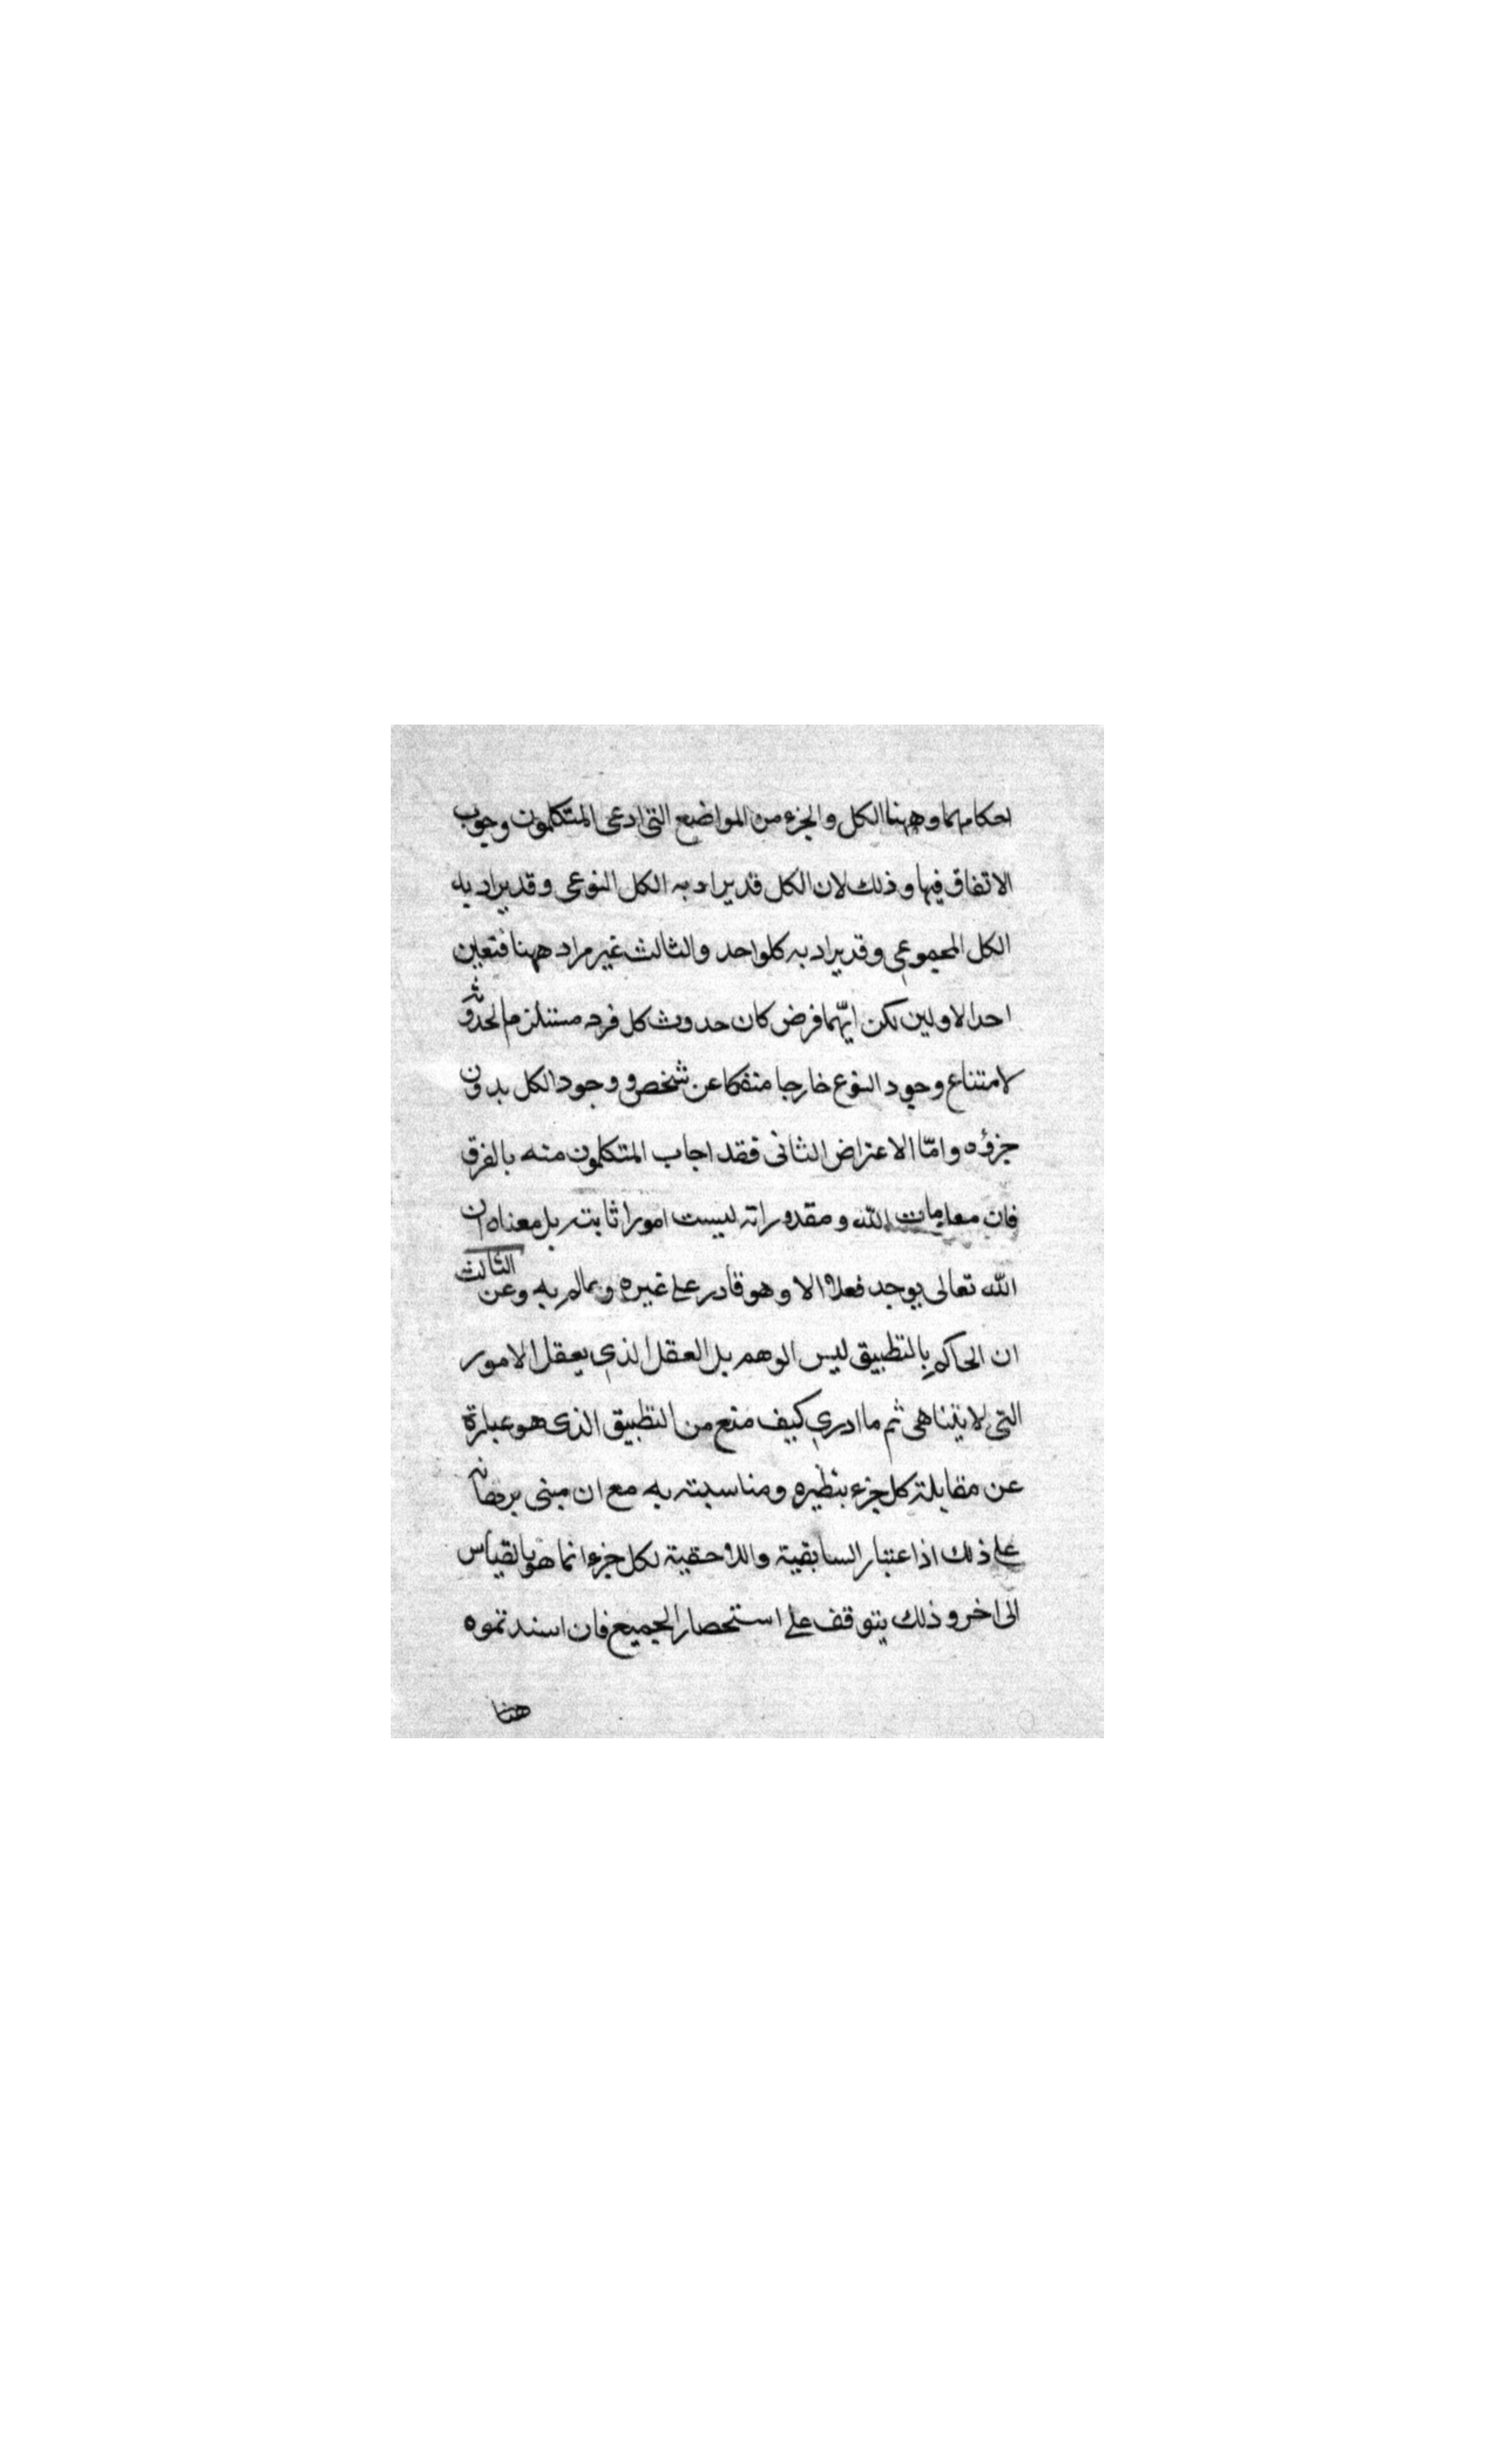 احكامهما وههنا الكل والجزء من المواضع التى ادعى المتكلمون وجوب
الاتفاق فيها وذلك لان الكل قد يراد به الكل النوعى وقد يراد به
الكل المجموعي وقد يراد به كلواحد والثالث غير مراد ههنا فتعين
احد الاولين لكن ايّهما فرض كان حدوث كل فرد مستلزم لحدوثه
لامتناع وجود النوع خارجا منفكا عن شخص ووجود الكل بدون
جزؤه وامّا الاعتراض الثانى فقد اجاب المتكلمون منه بالفرق
فان معلومات الله ومقدوراته ليست امورا ثابته بل معناه ان
الله تعالى يوجد فعلا الا وهو قادر على غيره وعالم به وعن الثالث
ان الحاكم بالتطبيق ليس الوهم بل العقل الذي يعقل الامور
التى لا يتناهى ثم ما ادري كيف منع من التطبيق الذى هو عبارة
عن مقابلة كل جزء بنظيره ومناسبته به مع ان مبنى برهانه
على ذلك اذ اعتبار السابقية واللاحقية لكل جزء انما هو بالقياس
الى اخر وذلك يتوقف على استحضار الجميع فان اسندتموه
هنا